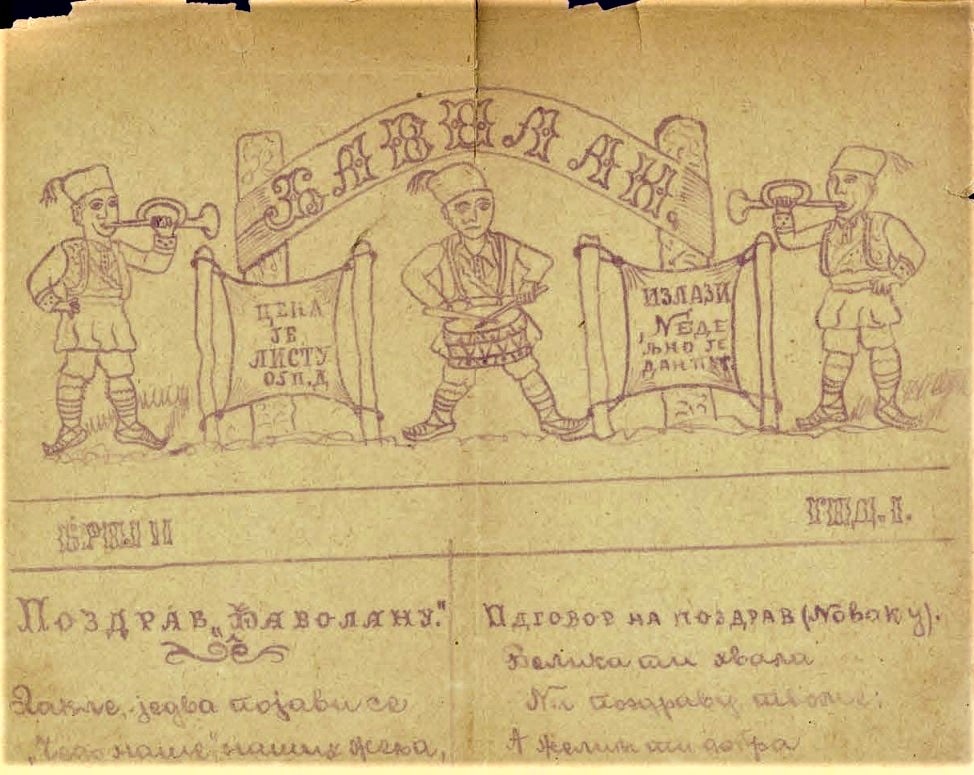 ЂАВОЛАН.
ЦЕНА
ЈЕ
ЛИСТУ
ИЗЛАЗИ
NЕДЕ
ЉНО ЈЕ
ДАНПУТ.
БРОЈ II
ГОД. I.
ПОЗДРАВ „ЂАВОЛАНУ.“
Дакле, једва појави се
„Чедо наше“, наших жеља,
ОДГОВОР НА ПОЗДРАВ (Nоваку).
Велика ти хвала
На поздраву твоме;
А желим ти добра